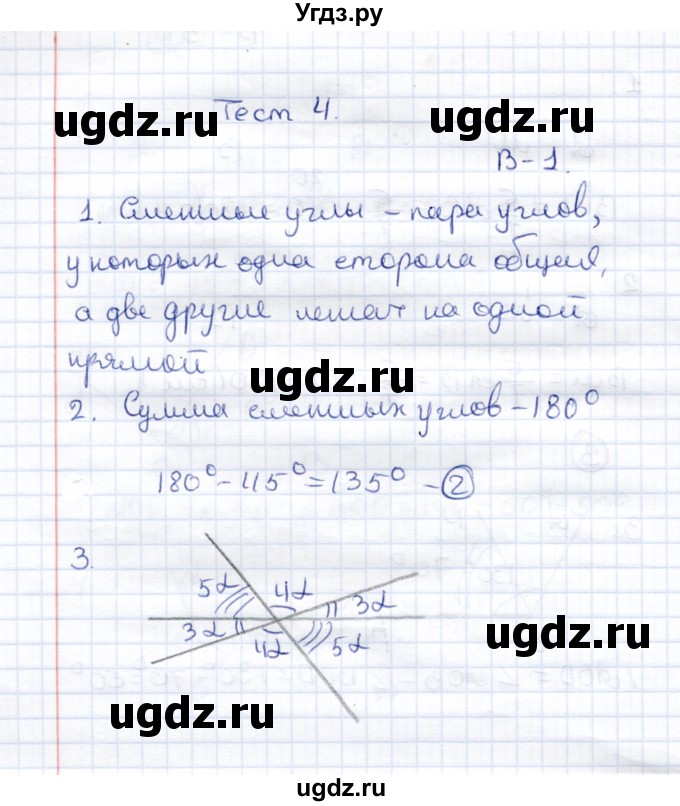 Угдз.ру
Тест 4.
ugdz.ru
ugdz.ru
В-1.
1. Смежные углы - пара углов,
у которых одна сторона общая,
а две другие лежат на одной
прямой
ugdz.ru
2. Сумма смежных углов - 180°
180° - 45° = 135° - 2
3.
5α 4α 3α
3α 4α 5α
ugdz.ru
ugdz.ru
ugdz.ru